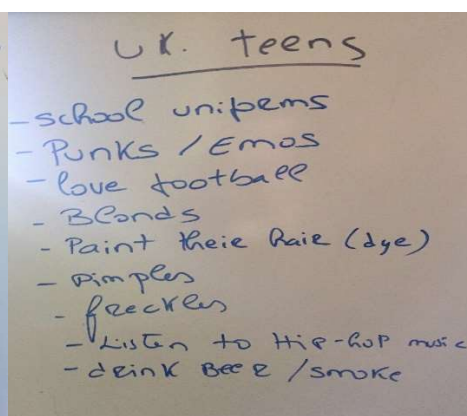 UK. teens
- school uniforms
- Punks / Emos
- love football
- Blonds
- Paint their hair (dye)
- pimples
- freckles
- Listen to Hip-hop music
- drink Beer / smoke